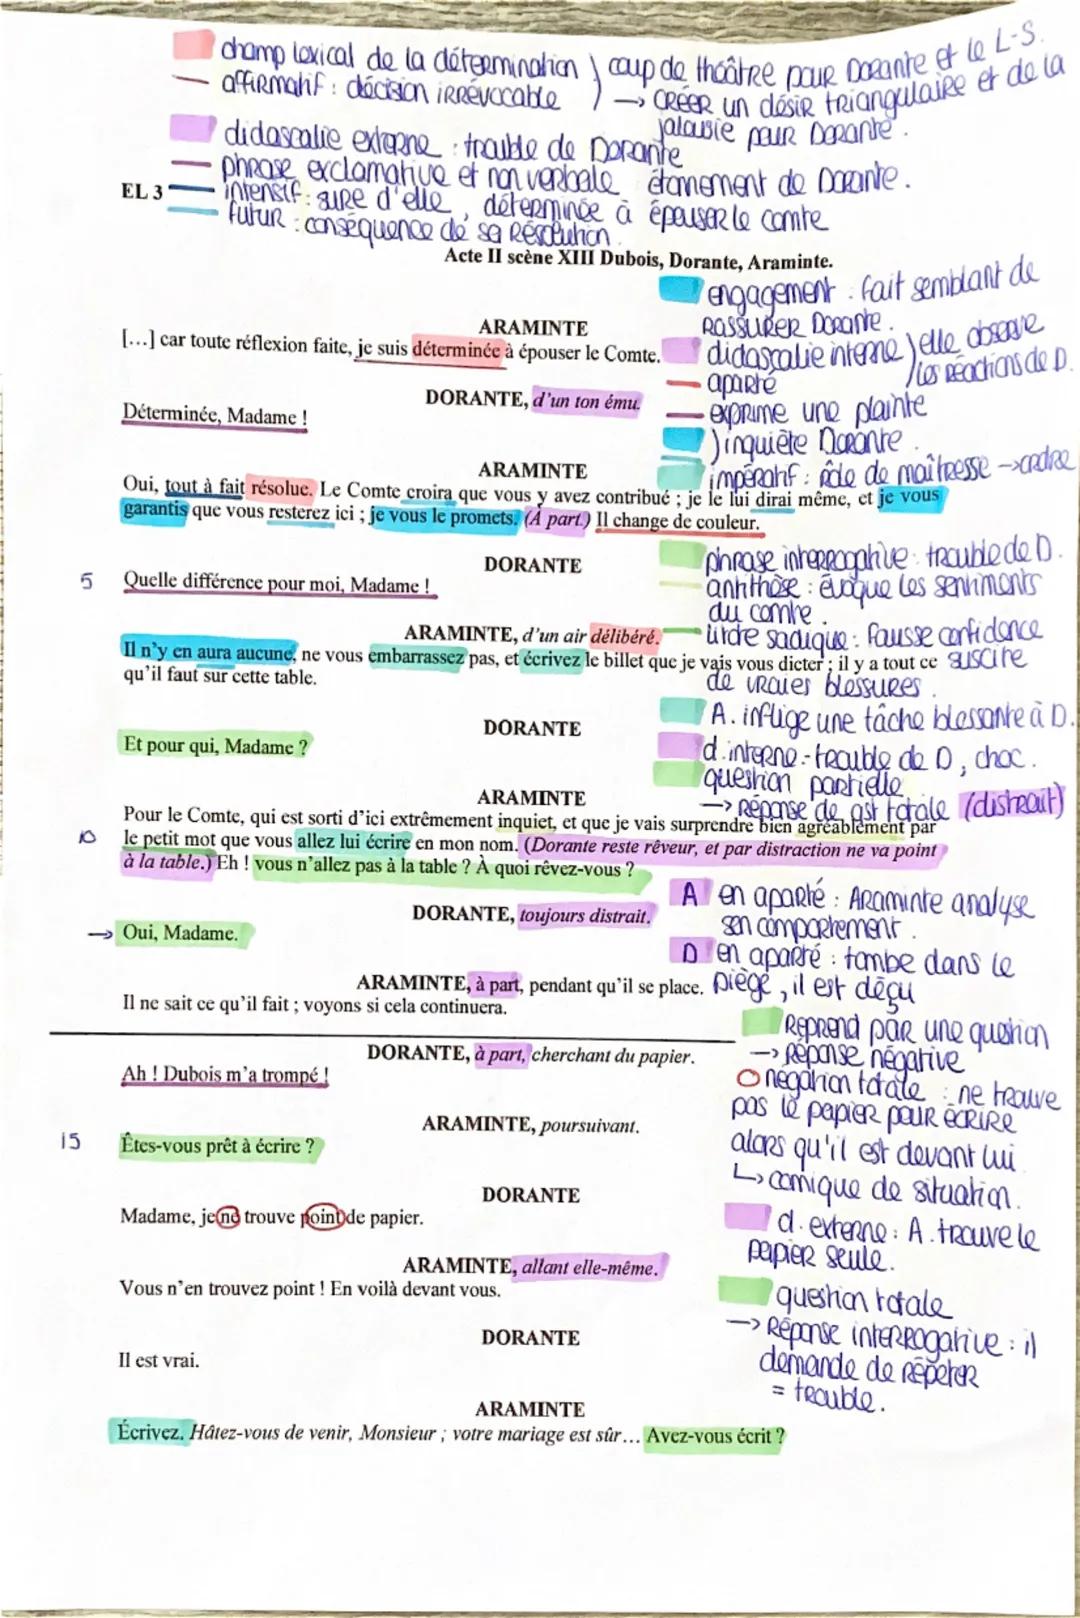 champ lexical de la détermination ) coup de théâtre pour Dorante et le L-S.
affirmatif : décision irrévocable ) → CRÉER un désir triangulaire et de la
jalousie pour Dorante.
didascalie externe : trouble de Dorante
phrase exclamative et non verbale étonnement de Dorante.
EL 3 intensif : sure d'elle, déterminée à épouser le comte
futur : conséquence de sa résolution.
Acte II scène XIII Dubois, Dorante, Araminte.
engagement : fait semblant de
rassurer Dorante.
ARAMINTE
[…] car toute réflexion faite, je suis déterminée à épouser le Comte.
didascalie interne ) elle observe
aparté ) les réactions de D.
DORANTE, d'un ton ému.
Déterminée, Madame !
exprime une plainte
) inquiète Dorante.
impératif : rôle de maîtresse → ordre
ARAMINTE
Oui, tout à fait résolue. Le Comte croira que vous y avez contribué ; je le lui dirai même, et je vous
garantis que vous resterez ici ; je vous le promets. (À part.) Il change de couleur.
phrase interrogative : trouble de D.
antithèse : évoque les sentiments
du comte.
DORANTE
5 Quelle différence pour moi, Madame !
litote sadique : Fausse confidence
suscite
de vraies blessures.
ARAMINTE, d'un air délibéré.
Il n'y en aura aucune, ne vous embarrassez pas, et écrivez le billet que je vais vous dicter ; il y a tout ce
qu'il faut sur cette table.
A. inflige une tâche blessante à D.
d. interne : trouble de D, choc.
question partielle
→ réponse de qst totale (distrait)
DORANTE
Et pour qui, Madame ?
ARAMINTE
Pour le Comte, qui est sorti d'ici extrêmement inquiet, et que je vais surprendre bien agréablement par
10 le petit mot que vous allez lui écrire en mon nom. (Dorante reste rêveur, et par distraction ne va point
à la table.) Eh ! vous n'allez pas à la table ? À quoi rêvez-vous ?
A en aparté : Araminte analyse
son comportement.
D en aparté : tombe dans le
piège, il est déçu
DORANTE, toujours distrait.
→ Oui, Madame.
ARAMINTE, à part, pendant qu'il se place.
Il ne sait ce qu'il fait ; voyons si cela continuera.
Reprend par une question
→ réponse négative
O négation totale : ne trouve
pas le papier pour écrire
alors qu'il est devant lui
↳ comique de situation.
DORANTE, à part, cherchant du papier.
Ah ! Dubois m'a trompé !
ARAMINTE, poursuivant.
15 Êtes-vous prêt à écrire ?
DORANTE
Madame, je ne trouve point de papier.
d. externe : A. trouve le
papier seule.
ARAMINTE, allant elle-même.
Vous n'en trouvez point ! En voilà devant vous.
question totale
→ Réponse interrogative : il
demande de répéter
= trouble.
DORANTE
Il est vrai.
ARAMINTE
Écrivez. Hâtez-vous de venir, Monsieur ; votre mariage est sûr… Avez-vous écrit ?